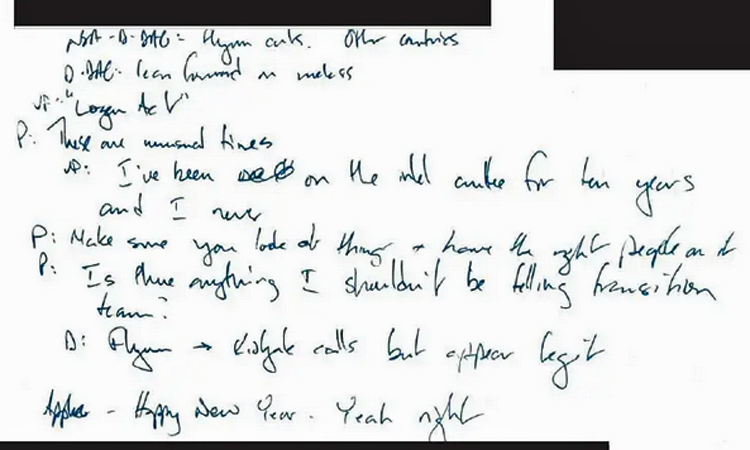 NSA-D-DAG: Flynn cuts. Other countries
D-DAG: lean forward on unclass
VP: "Logan Act"
P: These are unusual times
VP: I've been on the intel cmtee for ten years
and I never
P: Make sure you look at things + have the right people on it
P: Is there anything I shouldn't be telling transition
team?
D: Flynn → Kislyak calls but appear legit
Happy New Year. Yeah right